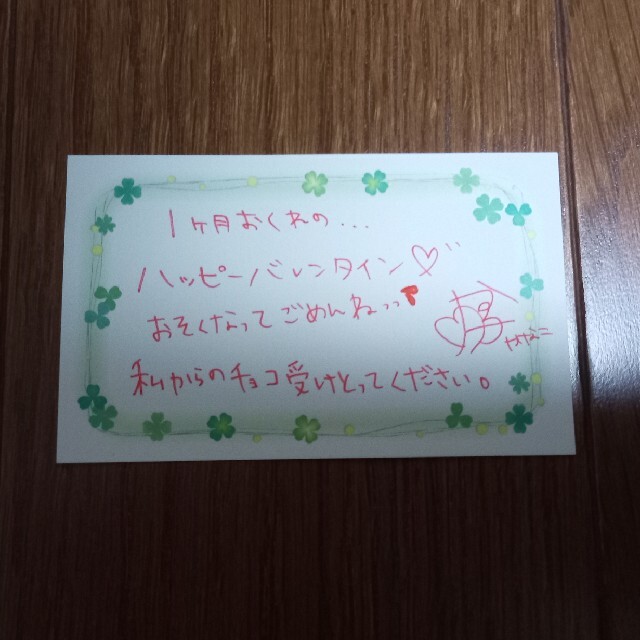 1ヶ月おくれの...
ハッピーバレンタイン♡
おそくなってごめんねっっ
私からのチョコ受けとってください。